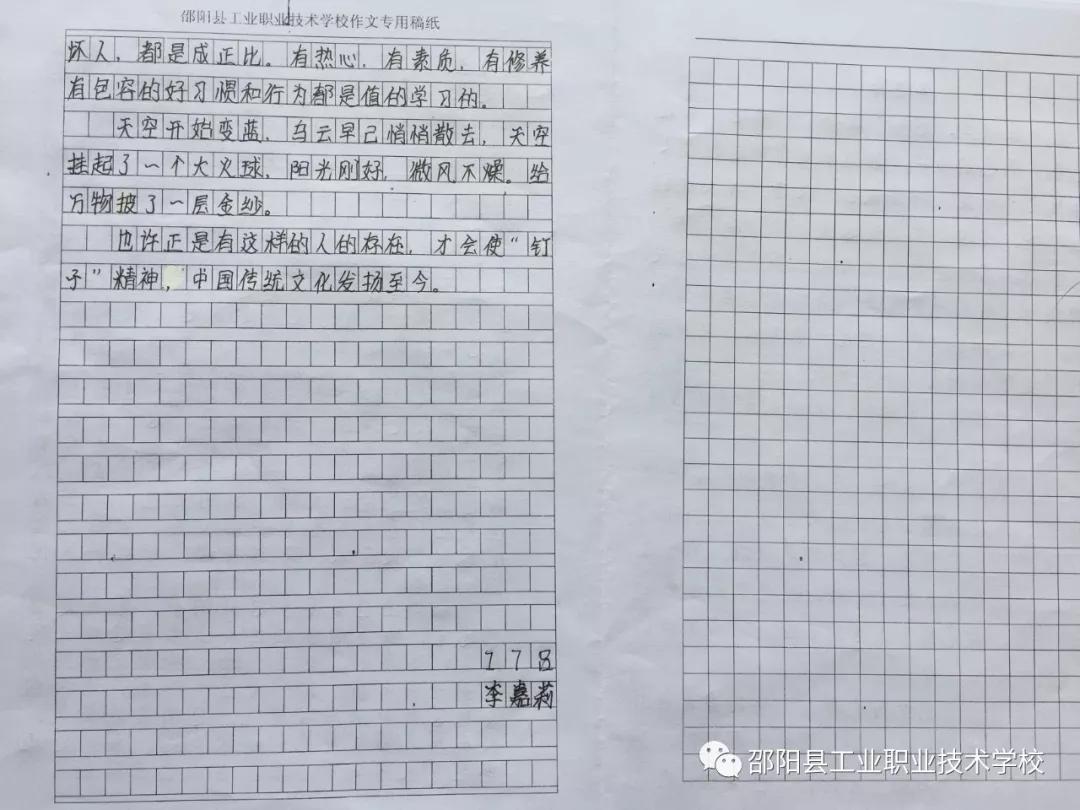 邵阳县工业职业技术学校作文专用稿纸
坏人，都是成正比。有热心，有素质，有修养
有包容的好习惯和行为都是值的学习的。
天空开始变蓝，乌云早已悄悄散去，天空
挂起了一个大火球，阳光刚好，微风不燥。给
万物披了一层金纱。
也许正是有这样的人的存在，才会使“钉
子”精神，中国传统文化发扬至今。
178
李嘉莉
邵阳县工业职业技术学校